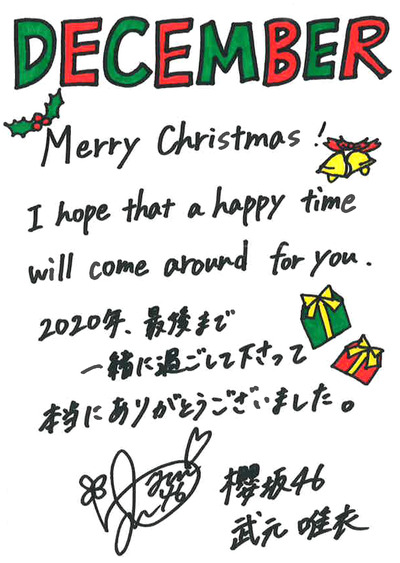 DECEMBER
Merry Christmas!
I hope that a happy time
will come around for you.
2020年、最後まで
一緒に過ごして下さって
本当にありがとうございました。
櫻坂46
武元唯衣